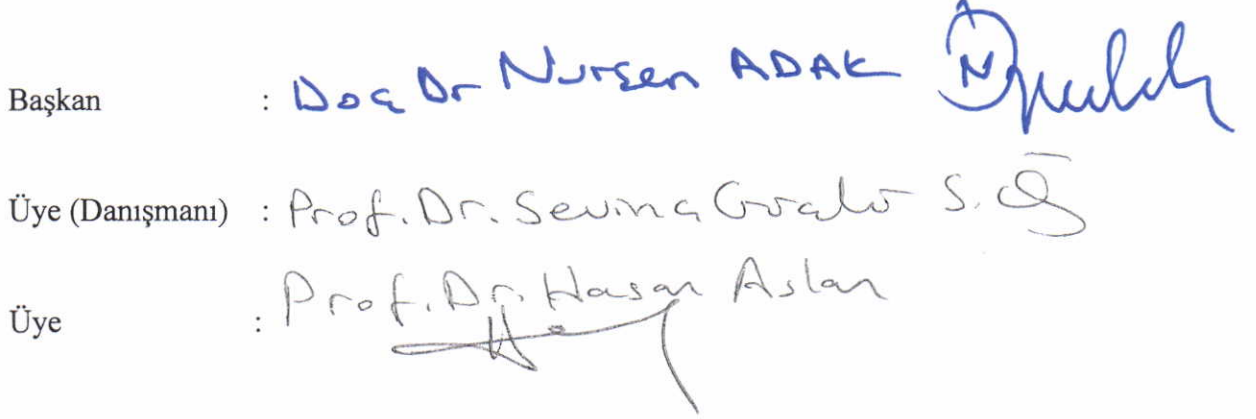 Başkan : Doç Dr Nurşen ADAK
Üye (Danışmanı) : Prof. Dr. Sevinç
Üye : Prof. Dr. Hasan Aslan